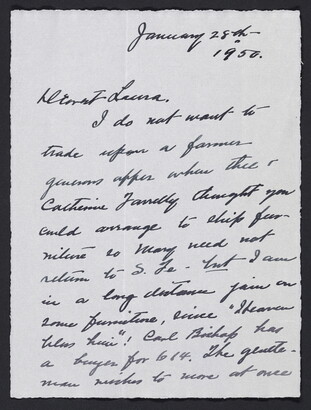 January 28th-
1950.
Dearest Laura,
I do not want to
trade upon a former
generous offer when
Catherine Farrelly thought you
could arrange to ship fur-
niture so Mary need not
return to S. Fe - but I am
in a long distance jam on
some furniture, since "Heaven
bless him"! Carl Bishop has
a buyer for 614. The gentle-
man wishes to move at once